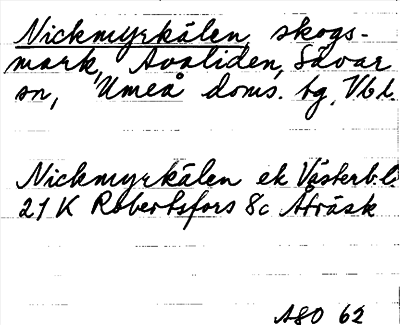 Nickmyrkälen, skogs-
mark, Avaliden, Sävar
sn, Umeå doms. tg, Vbl.
Nickmyrkälen ek Västerb.l.
21 K Robertsfors 8c Åträsk
ASO 62